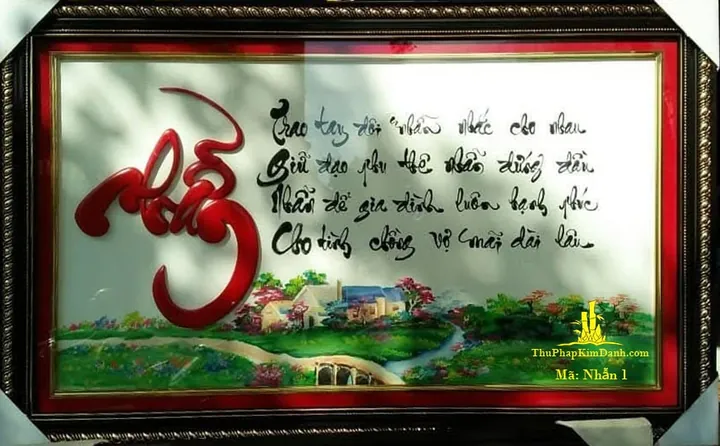 Nhẫn
Trao tay đôi "nhẫn nhắc cho nhau
Giữ đạo phu thê nhẫn đứng đầu
Nhẫn để gia đình luôn hạnh phúc
Cho tình chồng vợ mãi dài lâu
ThuPhapKimDanh.com
Mã: Nhẫn 1